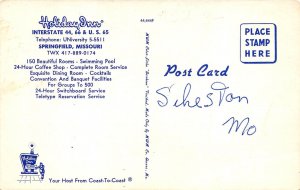 Holiday Inn
INTERSTATE 44, 66 & U. S. 65
Telephone: UNiversity 5-5511
SPRINGFIELD, MISSOURI
TWX 417-889-0174
150 Beautiful Rooms - Swimming Pool
24-Hour Coffee Shop - Complete Room Service
Exquisite Dining Room - Cocktails
Convention And Banquet Facilities
For Groups To 500
24-Hour Switchboard Service
Teletype Reservation Service
Holiday Inn
Your Host From Coast-To-Coast ®
Post Card
PLACE
STAMP
HERE
Sikeston
Mo